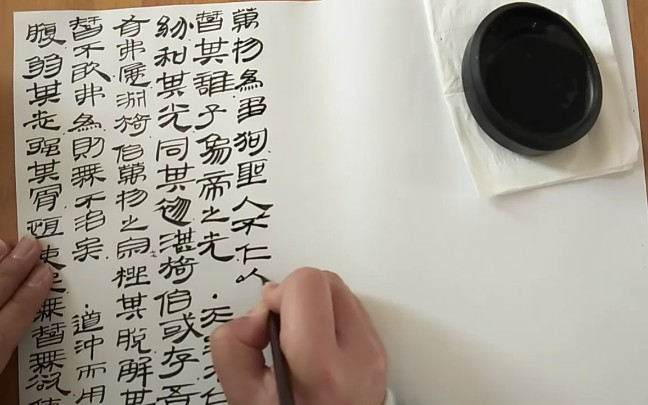 腹弱其志強其骨恆使民無智無欲使
智不敢弗為則無不治矣·道沖而用
有弗盈淵猗伯萬物之宗挫其脫解其
紛和其光同其塵湛猗伯或存吾
智其誰子象帝之先·天地不仁
萬物為芻狗聖人不仁以